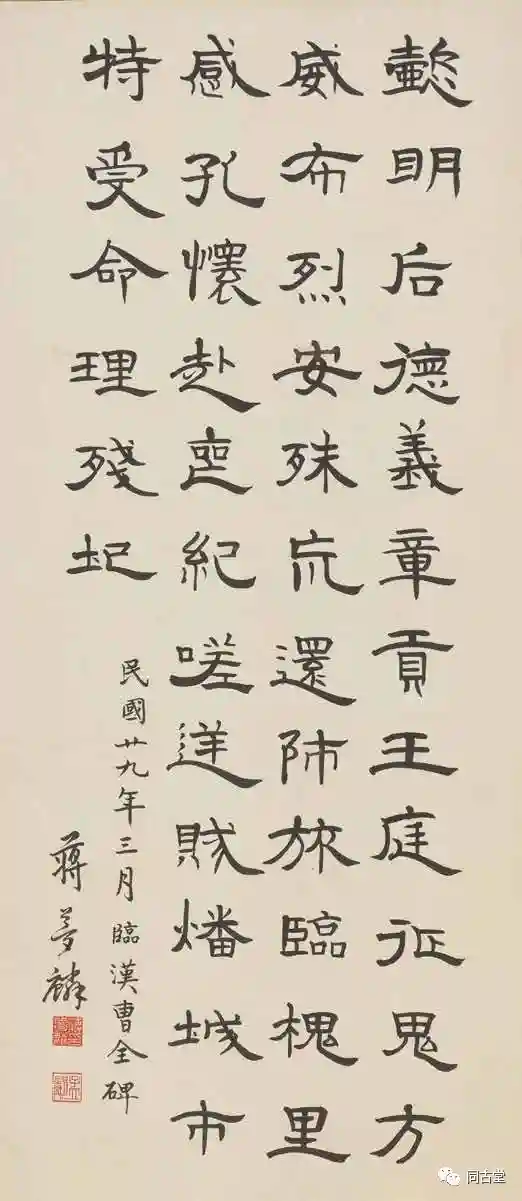 懿明后德義章貢王庭征鬼方
威布烈安殊巟還師旅臨槐里
感孔懷赴喪紀嗟逆賊燔城市
特受命理殘圮
民國廿九年三月臨漢曹全碑
蔣夢麟
同古堂